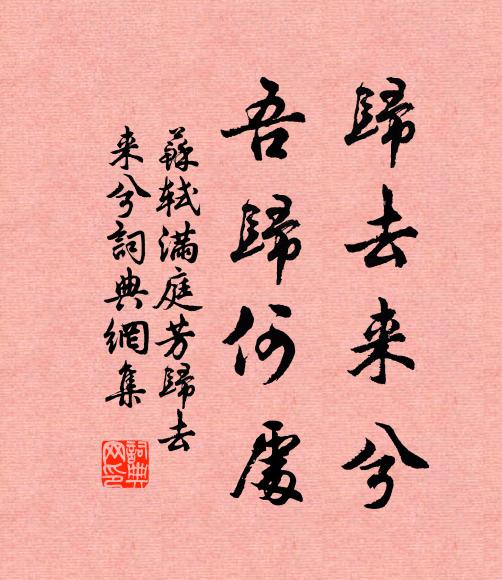 歸去来兮
吾歸何處
蘇軾滿庭芳歸去
来兮詞典網集
詞典
网印